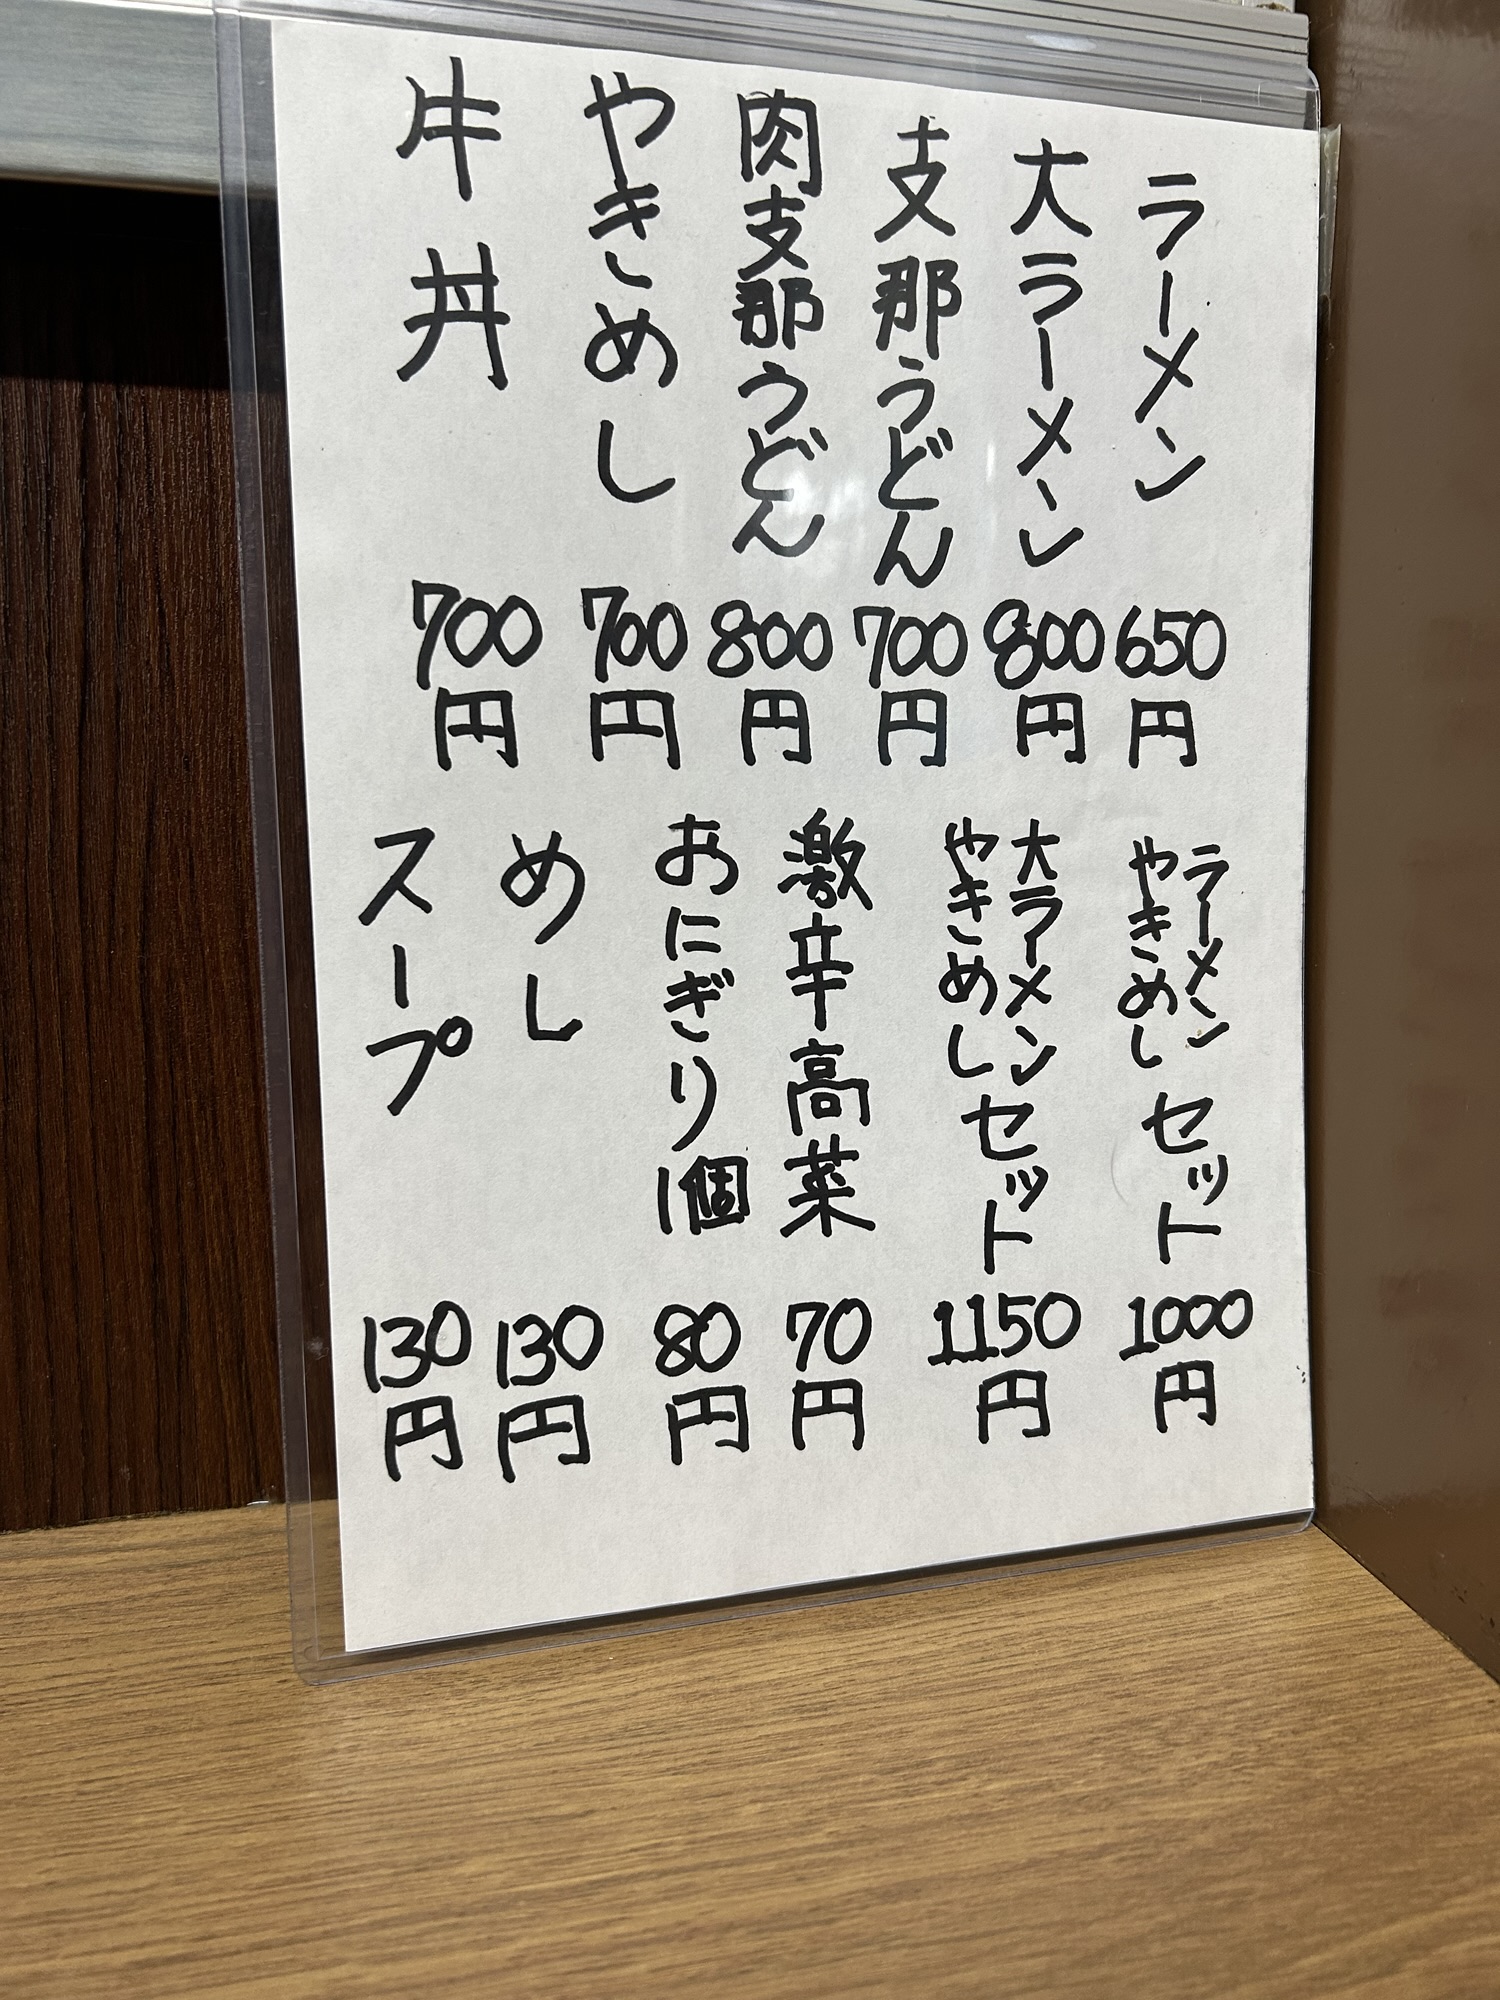 ラーメン 650円
大ラーメン 800円
支那うどん 700円
肉支那うどん 800円
やきめし 700円
牛丼 700円
ラーメン
やきめし
セット 1000円
大ラーメン
やきめし
セット 1150円
激辛高菜 70円
おにぎり1個 80円
めし 130円
スープ 130円